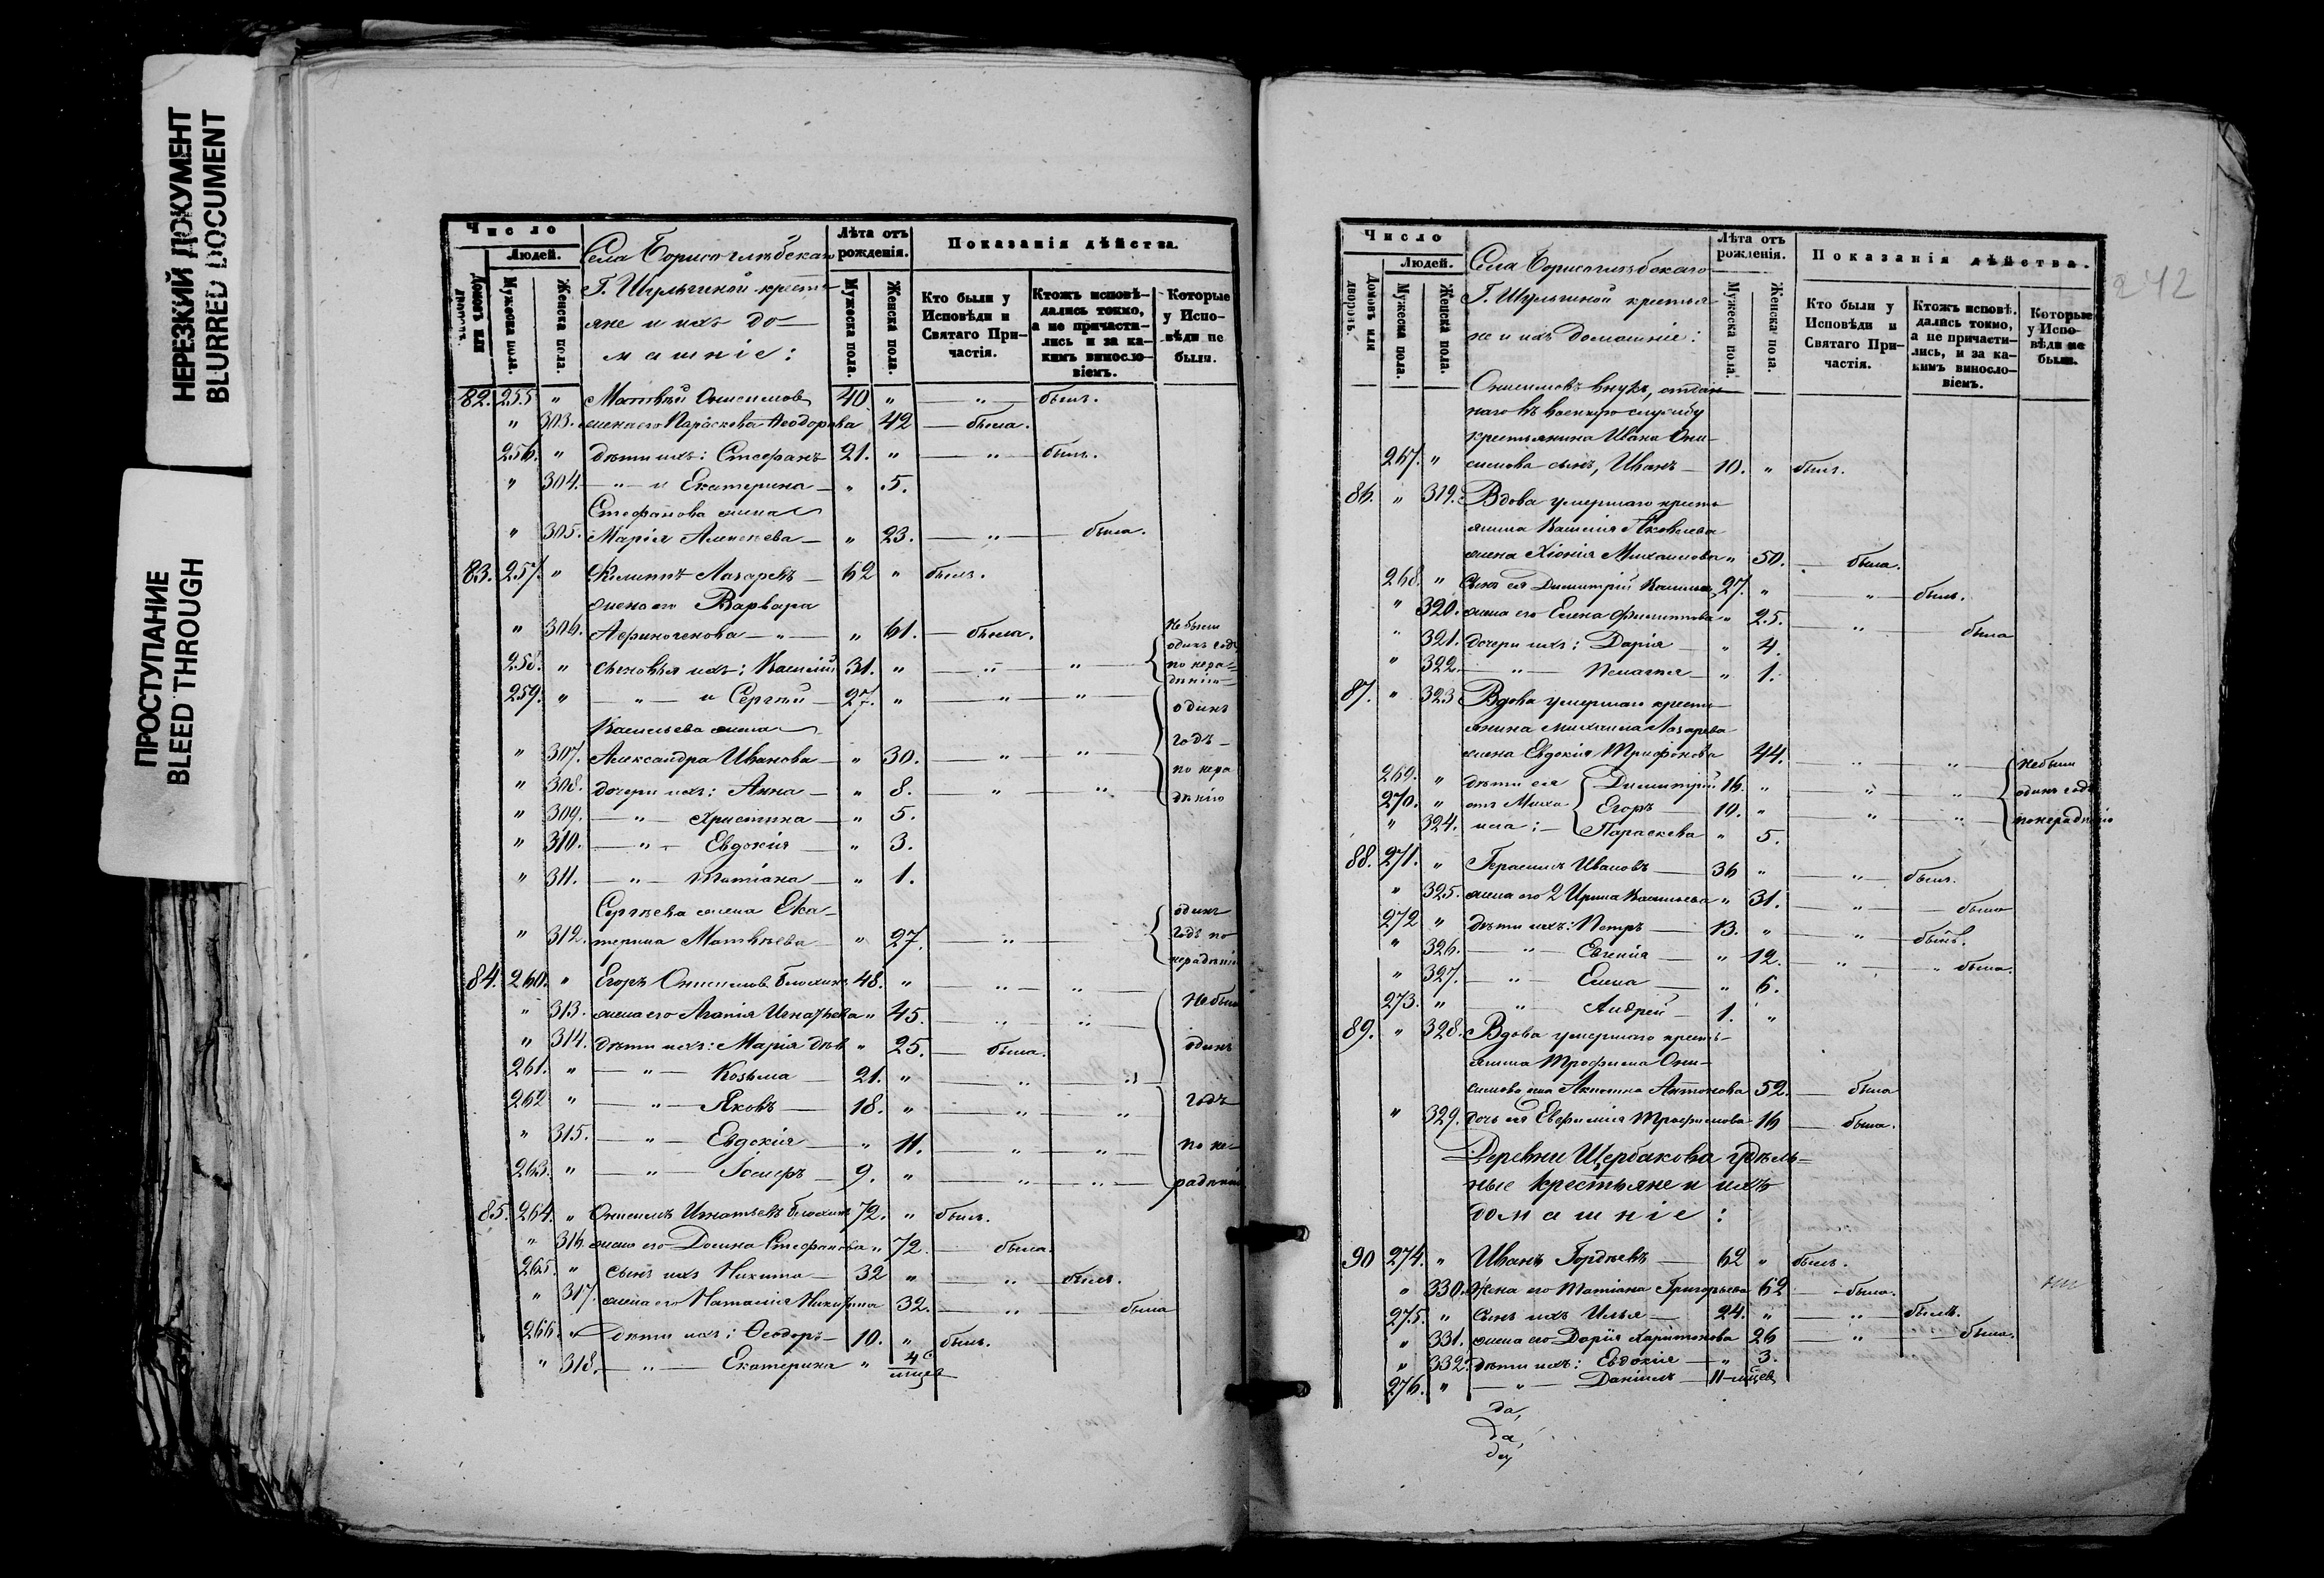 НЕРЕЗКИЙ ДОКУМЕНТ
BLURRED DOCUMENT
ПРОСТУПАНИЕ
BLEED THROUGH
Число
Людей.
Домовъ или дворовъ.
Мужеска пола.
Женска пола.
Села Борисоглебскаго
Г. Шульгиной крестья-
яне и ихъ до-
машніе:
Лѣта отъ рожденія.
Мужеска пола.
Женска пола.
Показанія дѣйства.
Кто были у Исповѣди и Святаго При-частія.
Ктожъ исповѣ-дались токмо, а не причасти-лись и за ка-кимъ винословіемъ.
Которые у Испо-вѣди не были.
82. 255 " Матвѣй Онисимовъ 40. " — " — былъ.
" 303. жена его Параскева Ѳеодорова 42 — была.
256. " дѣти ихъ: Стефанъ 21. " — " былъ.
" 304. — " — и Екатерина — " 5.
Стефанова жена
" 305. Марія Алексѣева — " 23. — " — была.
83. 257. " Филиппъ Лазаревъ — 62 " былъ.
жена его Варвара
" 306. Афиногенова — " — " 61. — была.
258. " сыновья ихъ: Василій 31. " — " — " { не были одинъ годъ по нера-дѣнію
259. " — " — и Сергѣй — 27. " — " — "
Васильева жена
" 307. Александра Иванова — " 30. — " — " { одинъ годъ — по нера дѣнію
" 308. дочери ихъ: Анна — " 8. — " — "
" 309. — " — Христина — " 5.
" 310. — " — Евдокія — " 3.
" 311. — " — Татіана — " 1.
Сергѣева жена Ека-
" 312. терина Матвѣева — " 27. — " — { одинъ годъ по нерадѣнію
84. 260. " Егоръ Онисимовъ 48. " — " — "
" 313. жена его Агапія Игнатьева " 45. — " — " { не были
" 314. дѣти ихъ: Марія дѣв " 25. — была. одинъ
261. " — " — Козьма — 21. " — " — "
262 " — " — Яковъ — 18. " — " — " годъ
" 315. — " — Евдокія — " 11. — " — " по не-
263. " — " — 9. " — " — " радѣнію
85. 264. " Онисимъ Игнатьевъ 72. " былъ.
" 316. жена его Домна Стефанова " 72. — была.
265. " сынъ ихъ Никита — 32 " — " — былъ.
" 317. жена его Наталія 32. — " — была
266. " Дѣти ихъ: Ѳеодоръ — 10. " былъ.
" 318. — " — Екатерина " 4 мѣсяцев
Число
Людей.
Домовъ или дворовъ.
Мужеска пола.
Женска пола.
Села Борисоглебскаго
Г. Шульгиной крестья-
не и ихъ домашніе:
Лѣта отъ рожденія.
Мужеска пола.
Женска пола.
Показанія дѣйства.
Кто были у Исповѣди и Святаго При-частія.
Ктожъ исповѣ-дались токмо, а не причасти-лись, и за ка-кимъ винословіемъ.
Которые у Испо-вѣди не были.
242
Онисимовъ внукъ, отдан-
наго въ военную службу
крестьянина Ивана Они-
267. " симова сынъ, Иванъ — 10. " былъ.
86. " 319. Вдова умершаго кресть-
янина Василія Яковлева
жена Хіонія Михаилова " 50. — была.
268. " Сынъ ея Димитрій 27. " — " — былъ.
" 320. жена его Елена Филиппова " 25. — " — была
" 321. дочери ихъ: Дарія — " 4.
" 322. — " — Пелагея — " 1.
87. " 323 Вдова умершаго кресть-
янина Михаила Лазарева
жена Евдокія Трифонова 44. — " — " { не были
269. " дѣти ея { Димитрій 16. " — " — " одинъ годъ
270. " отъ Миха- Егоръ — 10. " — " — " по нерадѣнію
" 324. ила: — Параскева " 5.
88. 271. " Герасимъ Ивановъ — 36 " — " — былъ.
" 325. жена его 2 Ирина Васильева " 31. — " — была
272 " дѣти ихъ: Петръ — 13. " — " — былъ.
" 326. — " — Евгенія — " 12. — " — была.
" 327. — " — Елена — " 6.
273. " — " — Андрей — 1. "
89. " 328. Вдова умершаго кресть-
янина Трофима Они-
симова жена Акилина Антонова 52. — была
" 329. дочь ея Евфимія Трофимова 16 — была.
Деревни Щербакова удѣль-
ные крестьяне и ихъ
домашніе:
90 274. " Иванъ Гордѣевъ — 62 " былъ.
" 330. Жена его Татіана Григорьева 62 — была.
275. " Сынъ ихъ Илья — 24. " — " — былъ.
" 331. жена его Дарія Харитонова 26 — " — была.
" 332. дѣти ихъ: Евдокія — " 3.
276. " — " — Даніилъ — 11 мѣсяцев
да,
да,